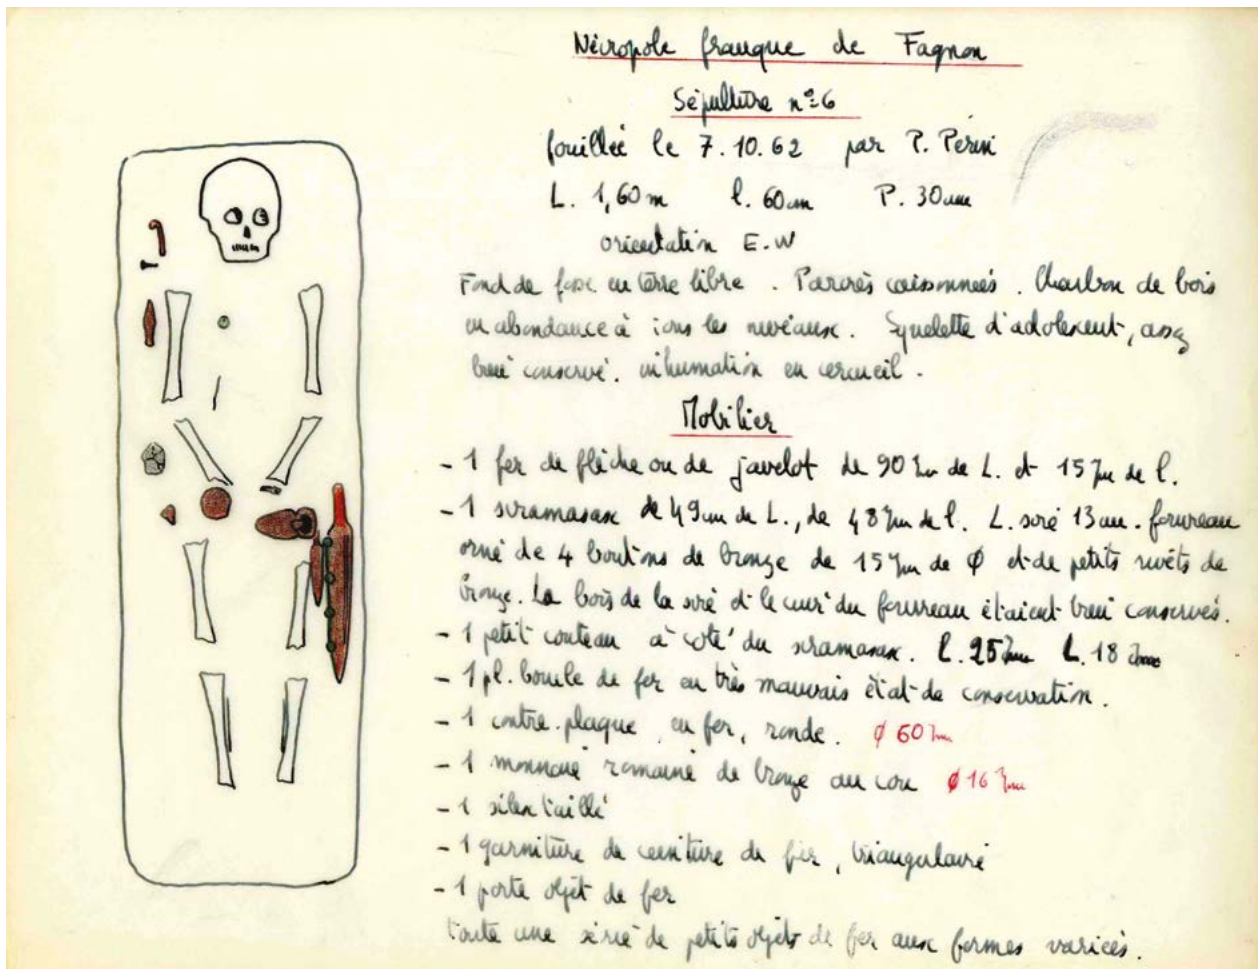 Nécropole franque de Fagnon
Sépulture n°6
fouillée le 7.10.62 par P. Périn
L. 1,60 m l. 60 cm P. 30 cm
orientation E.W
Fond de fosse en terre libre. Parois caissonnées. Charbon de bois
en abondance à tous les niveaux. Squelette d'adolescent, assez
bien conservé. inhumation en cercueil.
Mobilier
- 1 fer de flèche ou de javelot de 90 mm de L. et 15 mm de l.
- 1 scramasaxe de 49 cm de L., de 48 mm de l. L. soie 13 cm. fourreau
orné de 4 boutons de bronze de 15 mm de Ø et de petits rivets de
bronze. Le bois de la soie et le cuir du fourreau étaient bien conservés.
- 1 petit couteau à côté du scramasaxe. l. 25 mm L. 18
- 1 pl. boucle de fer en très mauvais état de conservation.
- 1 contre-plaque en fer, ronde. Ø 60 mm
- 1 monnaie romaine de bronze au cou Ø 16 mm
- 1 silex taillé
- 1 garniture de ceinture de fer, triangulaire
- 1 porte objet de fer
toute une série de petits objets de fer aux formes variées.